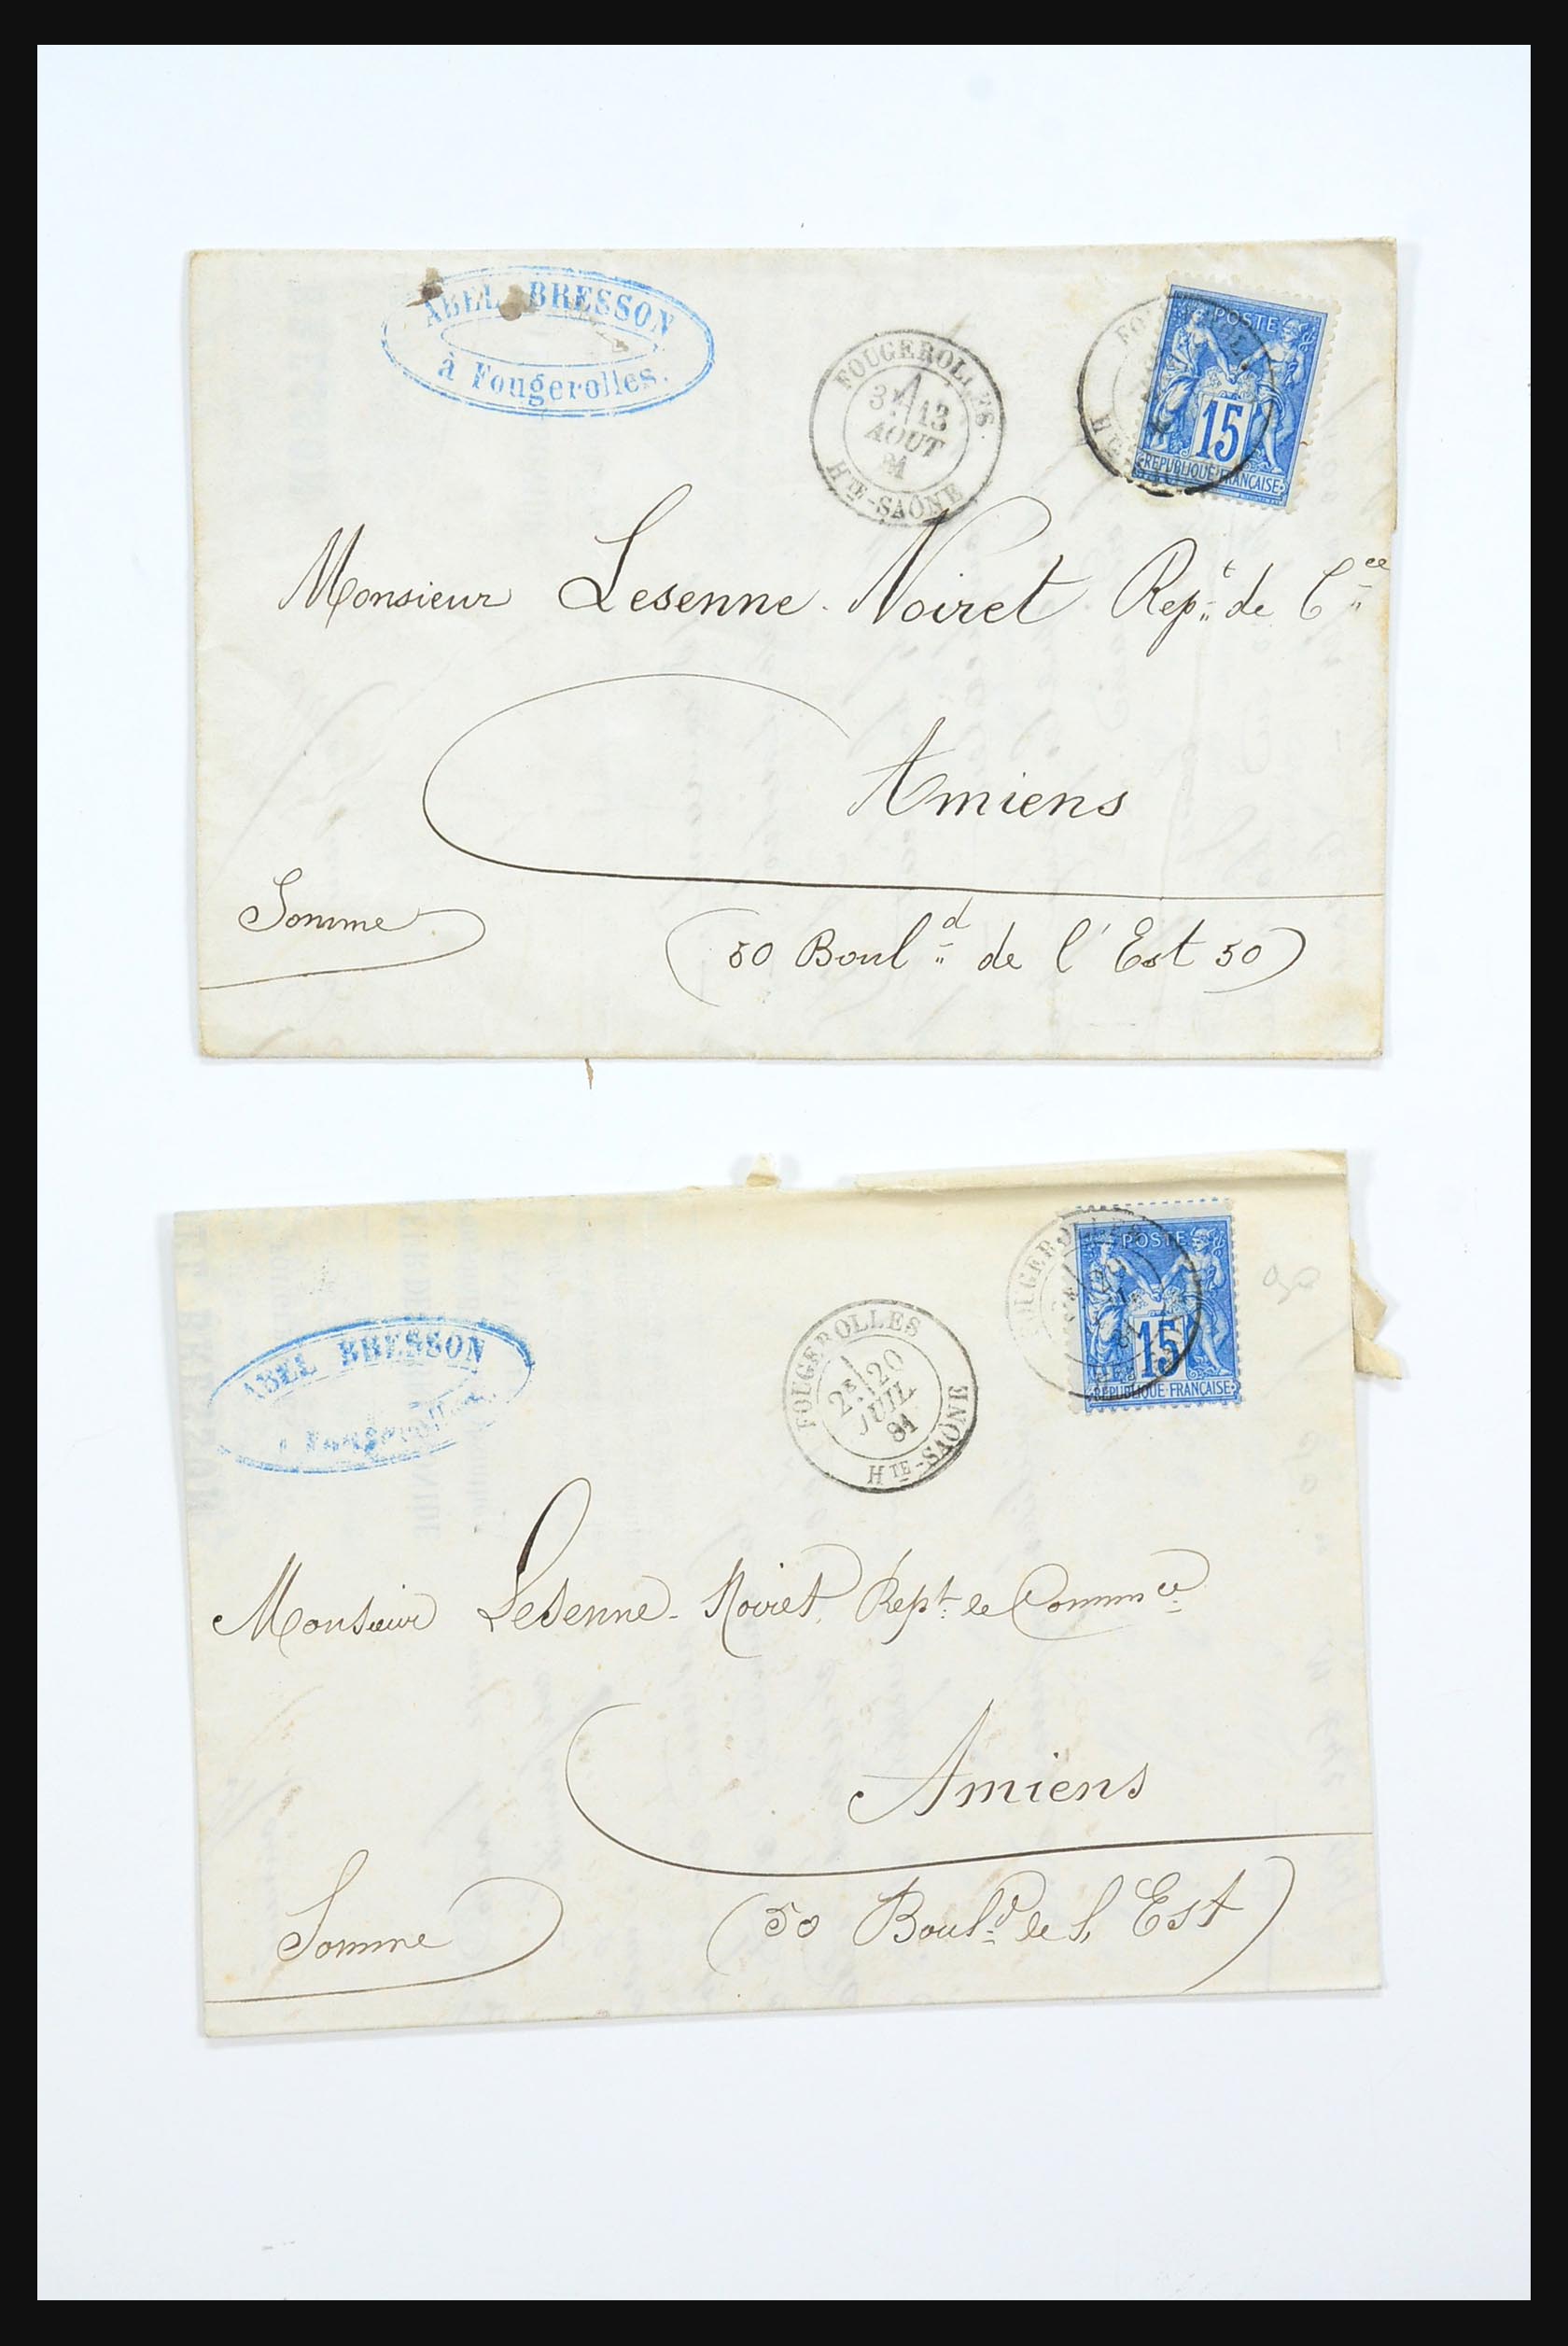 ABEL BRESSON
à Fougerolles.
FOUGEROLLES.
3E 13
AOUT
81
HTE-SAÔNE
POSTE
15
REPUBLIQUE FRANÇAISE
Monsieur Lesenne-Noiret Rept de Cce
Amiens
Somme
(50 Bould de l'Est 50)
ABEL BRESSON
à Fougerolles
FOUGEROLLES
2E 20
JUIL
81
HTE-SAÔNE
FOUGEROLLES
POSTE
15
REPUBLIQUE FRANÇAISE
Monsieur Lesenne-Noiret Rept de Commce
Amiens
Somme
(50 Bould de l'Est)